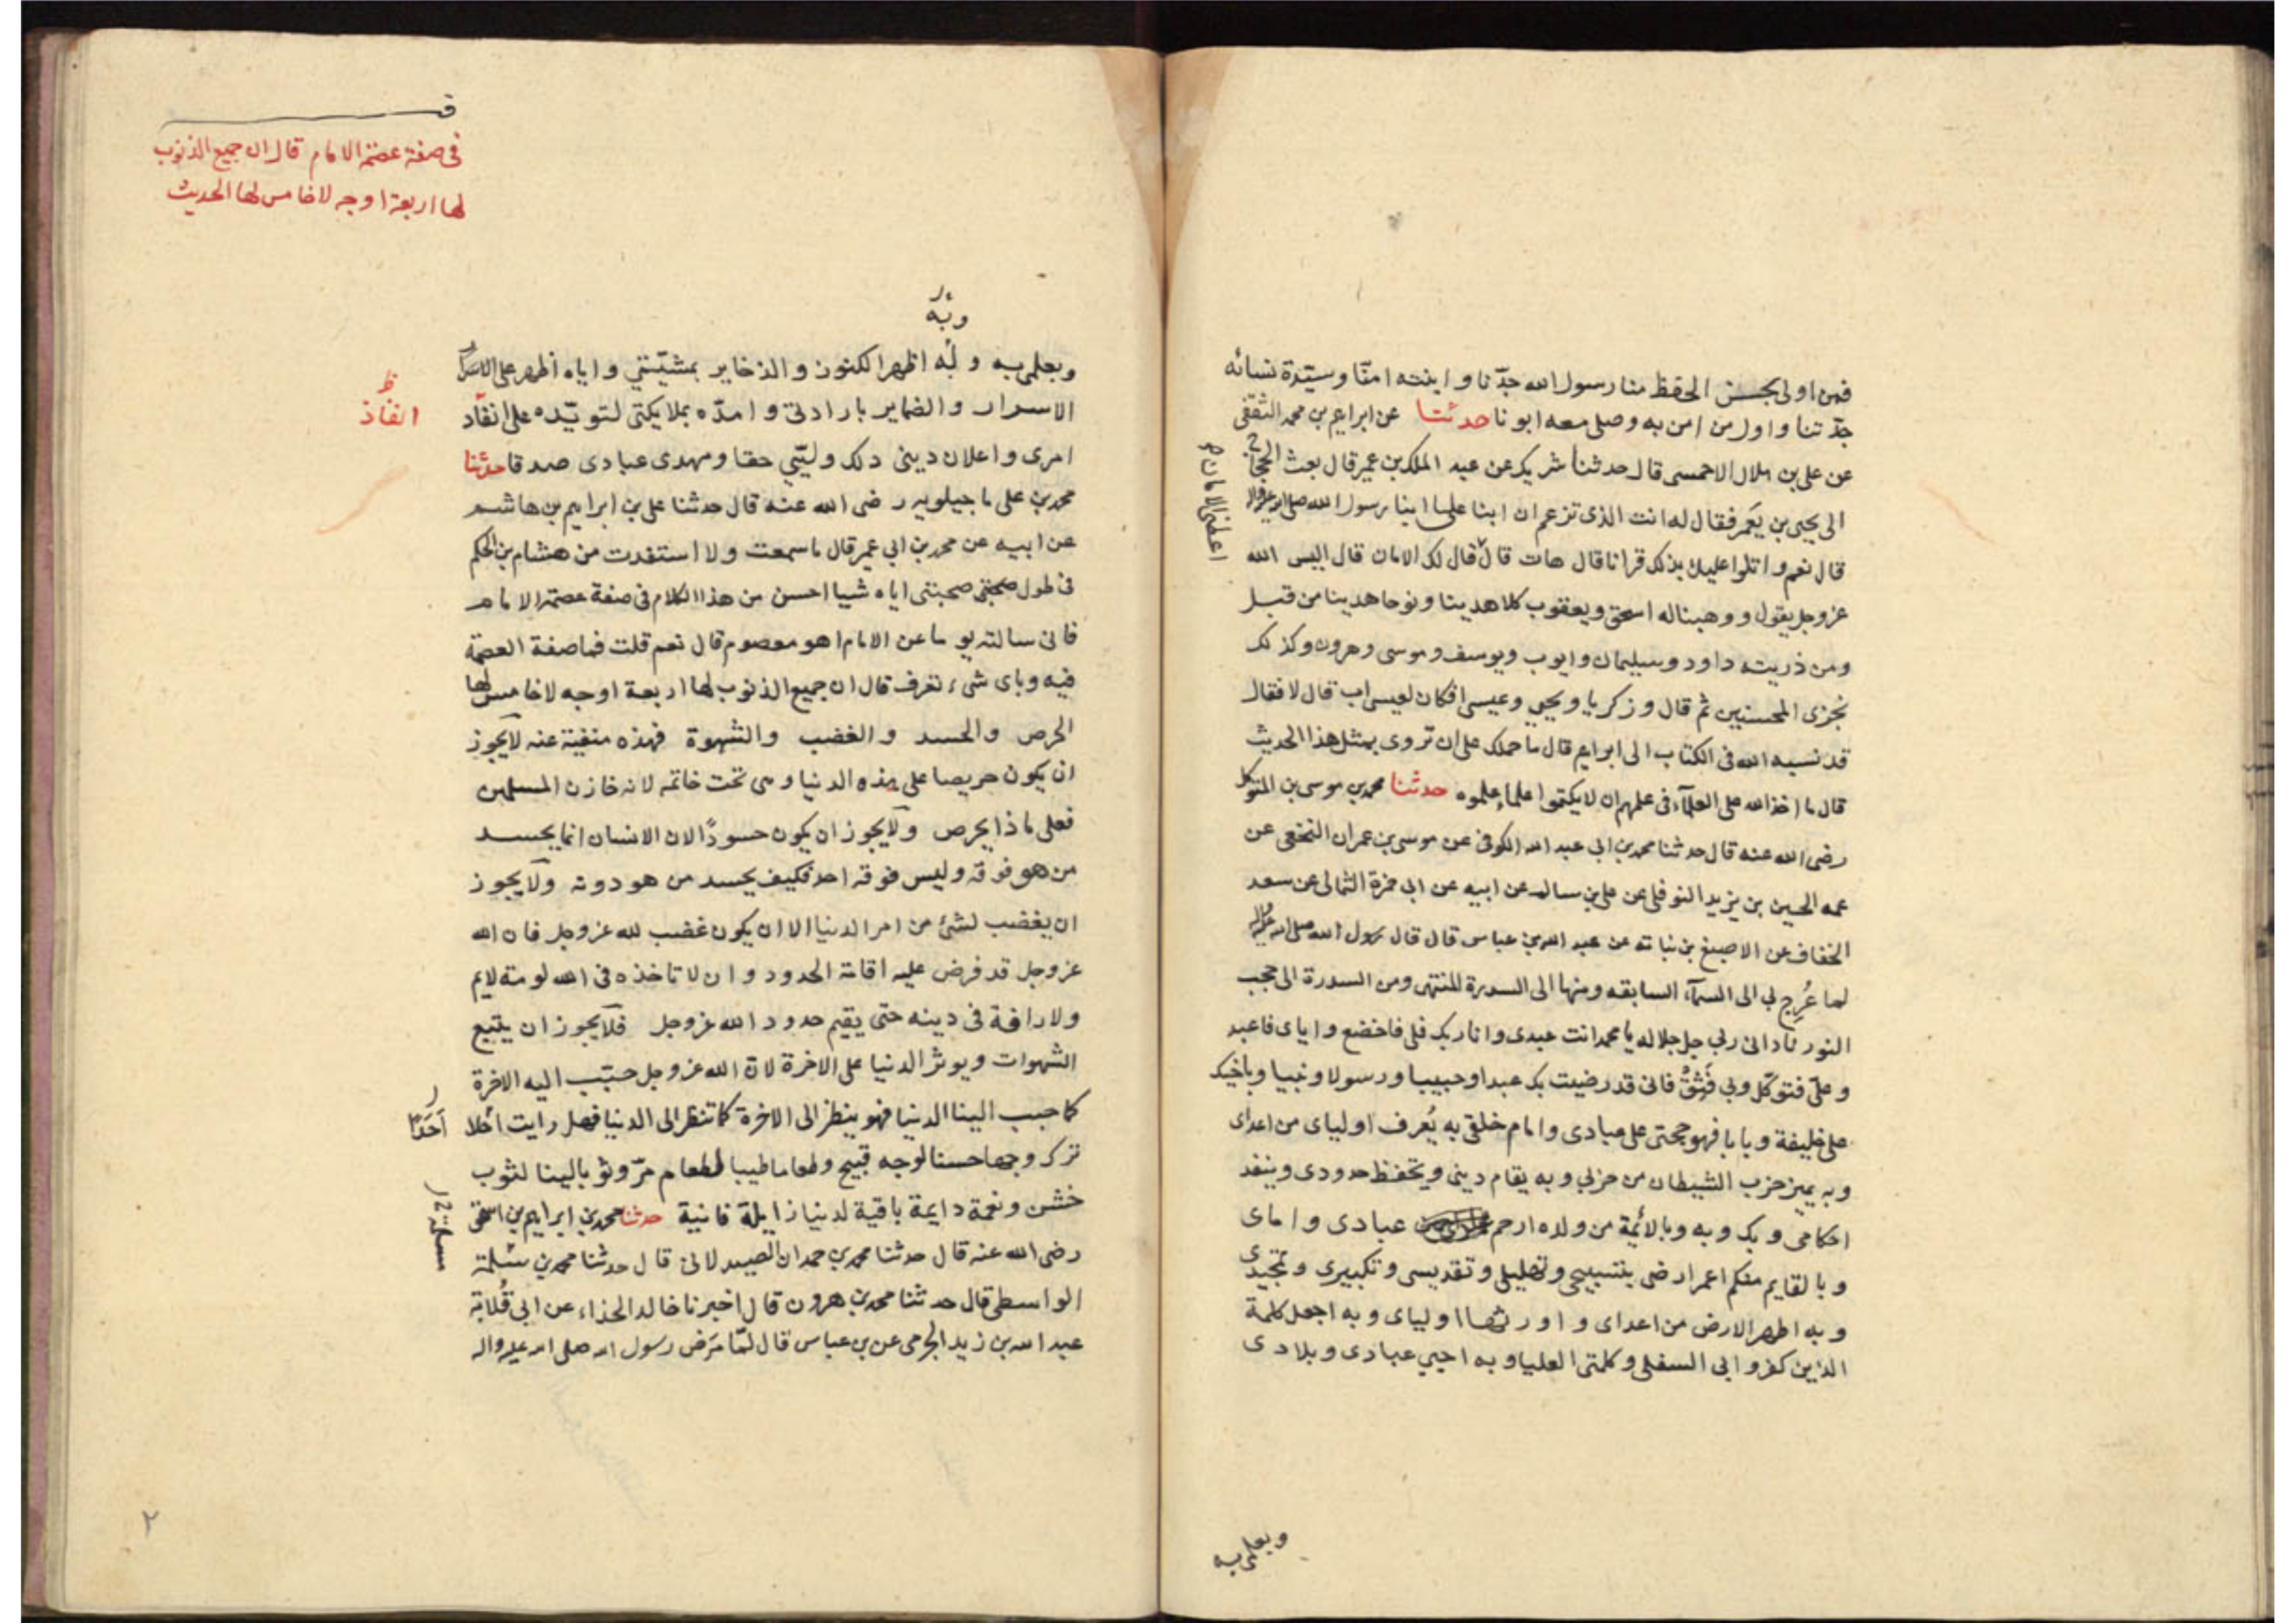 فمن اولى بحسن الحفظ منا رسول الله جدّنا وابنته امنّا وسيّدة نسائه
جدّتنا واول من امن به وصلى معه ابونا حدثنا عن ابراهيم بن محمد الثقفي
عن علي بن هلال الاحمسى قال حدثنا شريك عن عبد الملك بن عمير قال بعث الحجاج
الى يحيى بن يعمر فقال له انت الذى تزعم ان ابنا على ابنا رسول الله صلى الله عليه واله
قال نعم واتلوا عليك بذلك قرانا قال هات قال قال لك الامان قال اليس الله
عز وجل يقول ووهبنا له اسحق ويعقوب كلا هدينا ونوحا هدينا من قبل
ومن ذريته داود وسليمان وايوب ويوسف وموسى وهرون وكذلك
نجزى المحسنين ثم قال وزكريا ويحيى وعيسى افكان لعيسى اب قال لا فقال
قد نسبه الله فى الكتاب الى ابراهيم قال ما حملك على ان تروى بمثل هذا الحديث
قال ما اخذ الله على العلمآء فى علمهم ان لا يكتموا علما علموه حدثنا محمد بن موسى بن المتوكل
رضى الله عنه قال حدثنا محمد بن ابي عبد الله الكوفى عن موسى بن عمران النخعى عن
عمه الحسين بن يزيد النوفلى عن على بن سالم عن ابيه عن ابى حمزة الثمالى عن سعد
الخفاف عن الاصبغ بن نباته عن عبد الله بن عباس قال قال رسول الله صلى الله عليه واله
لما عُرِج بي الى السمآء السابعه ومنها الى السدرة المنتهى ومن السدرة الى حجب
النور نادانى ربي جل جلاله يا محمد انت عبدى وانا ربك فلى فاخضع واياى فاعبد
وعلىّ فتوكّل وبي فَثِقْ فانى قد رضيت بك عبدا وحبيبا ورسولا ونبيا وباخيك
على خليفة وبابا فهو حجتى على عبادى وامام خلقى به يُعرف اولياى من اعداى
وبه يميز حزب الشيطان من حزبي وبه يقام دينى ويحفظ حدودى وينفد
احكامى وبك وبه وبالائمة من ولده ارحم عبادى واماى
وبالقايم منكم اعمر ارضى بتسبيحى وتهليلى وتقديسى وتكبيرى وتمجيدى
وبه اطهر الارض من اعداى واورثها اولياى وبه اجعل كلمة
الذين كفروا بي السفلى وكلمتى العليا وبه احيي عبادى وبلادى
وبعلمى به
في صفة عصمة الامام قال ان جميع الذنوب
لها اربعة اوجه لا خامس لها الحديث
وبه
وبعلمى به وله اظهر الكنوز والذخاير بمشيّتي واياه اظهر على
الاسرار والضماير بارادتى وامدّه بملايكتى لتويّده على انفاد
انفاذ
امرى واعلان دينى ذلك وليّي حقا ومهدى عبادى صدقا حدثنا
محمد بن على ماجيلويه رضى الله عنه قال حدثنا على بن ابراهيم بن هاشم
عن ابيه عن محمد بن ابي عمير قال ما سمعت ولا استفدت من هشام بن الحكم
فى طول صحبتى صحبتى اياه شييا احسن من هذا الكلام فى صفة عصمة الامام
فانى سالته يوما عن الامام اهو معصوم قال نعم قلت فما صفة العصمة
فيه وباى شىء تعرف قال ان جميع الذنوب لها اربعة اوجه لا خامس لها
الحرص والحسد والغضب والشهوة فهذه منفية عنه لا يجوز
ان يكون حريصا على هذه الدنيا وهى تحت خاتمه لانه خازن المسلمين
فعلى ماذا يحرص ولا يجوز ان يكون حسودًا لان الانسان انما يحسد
من هو فوقه وليس فوقه احد فكيف يحسد من هو دونه ولا يجوز
ان يغضب لشئ من امر الدنيا الا ان يكون غضب لله عز وجل فان الله
عز وجل قد فرض عليه اقامة الحدود وان لا تاخذه فى الله لومة لايم
ولا رافة فى دينه حتى يقيم حدود الله عز وجل فلا يجوز ان يتبع
الشهوات ويوثر الدنيا على الاخرة لان الله عز وجل حبّب اليه الاخرة
كما حبب الينا الدنيا فهو ينظر الى الاخرة كما تنظر الى الدنيا فهل رايت
اَحَدًا
ترك وجها حسنا لوجه قبيح وطعاما طيبا لطعام مرّ وثوبا لينا لثوب
خشن ونعمة دايمة باقية لدنيا زايلة فانية حدثنا محمد بن ابراهيم بن اسحق
رضى الله عنه قال حدثنا محمد بن حمدان الصيدلانى قال حدثنا محمد بن مسلمة
الواسطى قال حدثنا محمد بن هرون قال اخبرنا خالد الحذاء عن ابى قُلابة
عبد الله بن زيد الجرمى عن بن عباس قال لمّا مَرَض رسول الله صلى الله عليه واله
٢